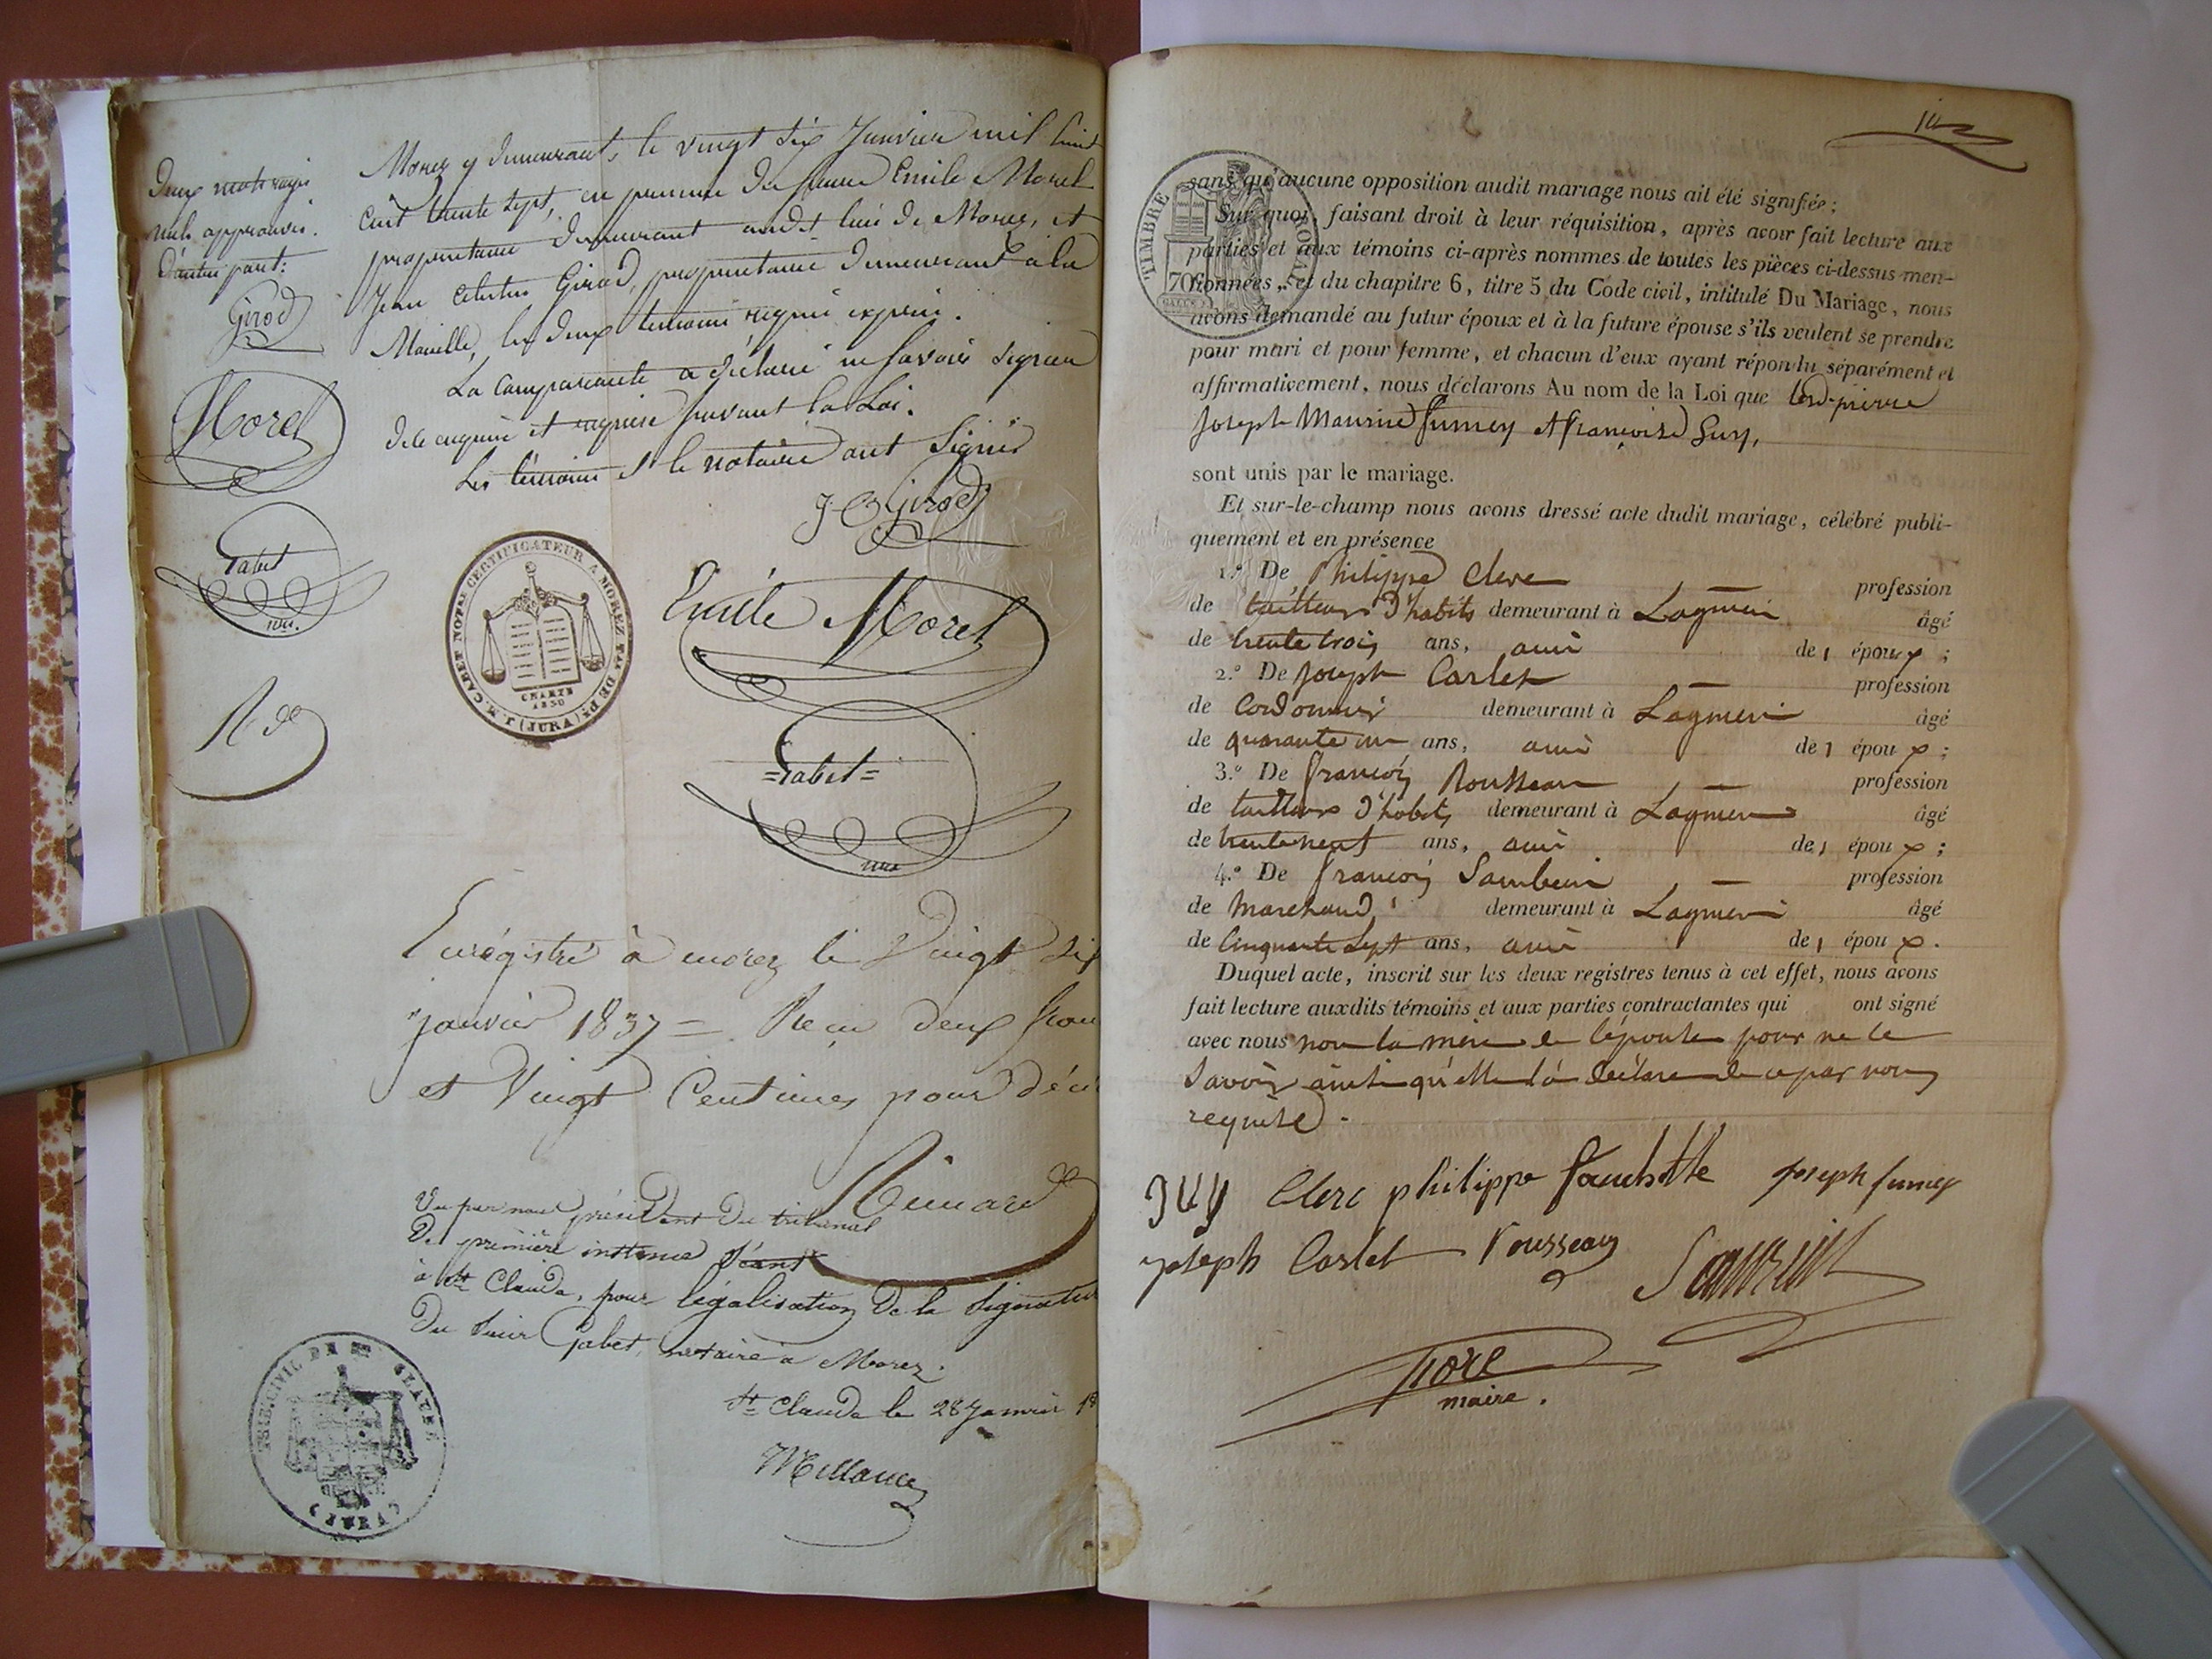 Deux mots rayés
nuls approuvés.
D'autre part:
Girod
Morel
Gabet
nre.
Morez y demeurant, le vingt six Janvier mil huit
cent trente sept, en presence des sieurs Emile Morel
propriétaire demeurant audit lieu de Morez, et
Jean Girod, propriétaire demeurant à la
Mouille, les deux témoins requis exprès.
La comparante a déclaré ne savoir signer
de ce enquise et requise suivant la Loi.
Les témoins et le notaire ont signés
J-B Girod
CABET NOTRE CERTIFICATEUR A MOREZ
CHARTE
1830
(JURA)
Emile Morel
=Gabet=
nre
Enrégistré à morez le Vingt six
janvier 1837 = Reçu deux fran
et Vingt Centimes pour déci
Vu par nous président du tribunal
De première instance séant
à St Claude, pour légalisation De la Signature
Du sieur Gabet, notaire à Morez.
St Claude le 28 Janvier 18
TRIB. CIVIL DE ST CLAUDE
(JURA)
10
2
TIMBRE ROYAL
70
sans qu'aucune opposition audit mariage nous ait été signifiée;
Sur quoi, faisant droit à leur réquisition, après avoir fait lecture aux
parties et aux témoins ci-après nommes de toutes les pièces ci-dessus men-
tionnées, et du chapitre 6, titre 5 du Code civil, intitulé Du Mariage, nous
avons demandé au futur époux et à la future épouse s'ils veulent se prendre
pour mari et pour femme, et chacun d'eux ayant répondu séparément et
affirmativement, nous déclarons Au nom de la Loi que pierre
Joseph Maurice fumey et françoise Guy,
sont unis par le mariage.
Et sur-le-champ nous avons dressé acte dudit mariage, célébré publi-
quement et en présence
1.º De Philippe Clerc — profession
de tailleur d'habits demeurant à Lagnieu âgé
de trente trois ans, ami de l époux ;
2.º De Joseph Carlet — profession
de Cordonnier demeurant à Lagnieu âgé
de quarante un ans, ami de l époux ;
3.º De françois Rousseau — profession
de tailleur d'habits demeurant à Lagnieu âgé
de trente neuf ans, ami de l époux ;
4.º De françois — profession
de Marchand demeurant à Lagnieu âgé
de Cinquante Sept ans, ami de l époux .
Duquel acte, inscrit sur les deux registres tenus à cet effet, nous avons
fait lecture auxdits témoins et aux parties contractantes qui ont signé
avec nous non la mère de l'épouse pour ne le
Savoir ainsi qu'elle l'a déclaré de ce par nous
requise.
guy Clerc philippe joseph fumey
joseph Carlet rousseau
maire.